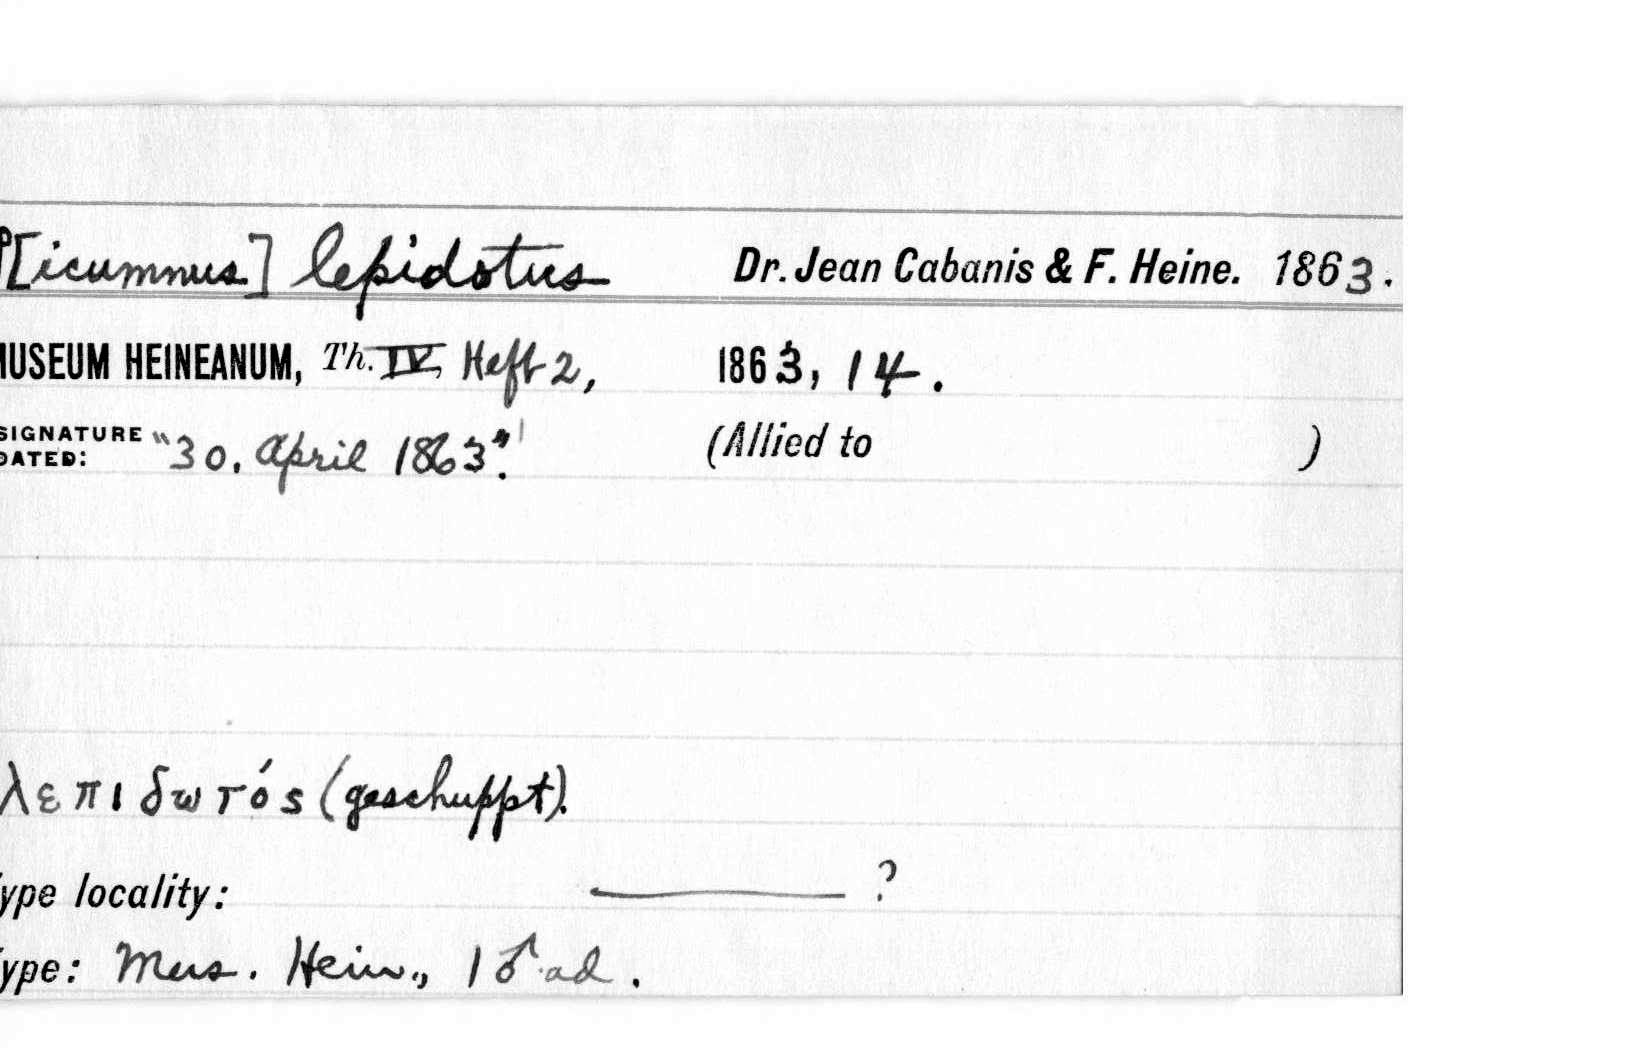 P[icumnus] lepidotus Dr. Jean Cabanis & F. Heine. 1863.
MUSEUM HEINEANUM, Th. IV, Heft 2, 1863, 14.
SIGNATURE DATED: "30. April 1863". (Allied to )
λεπιδωτός (geschuppt).
Type locality: ——— ?
Type: Mus. Hein., 1 ♂ ad.